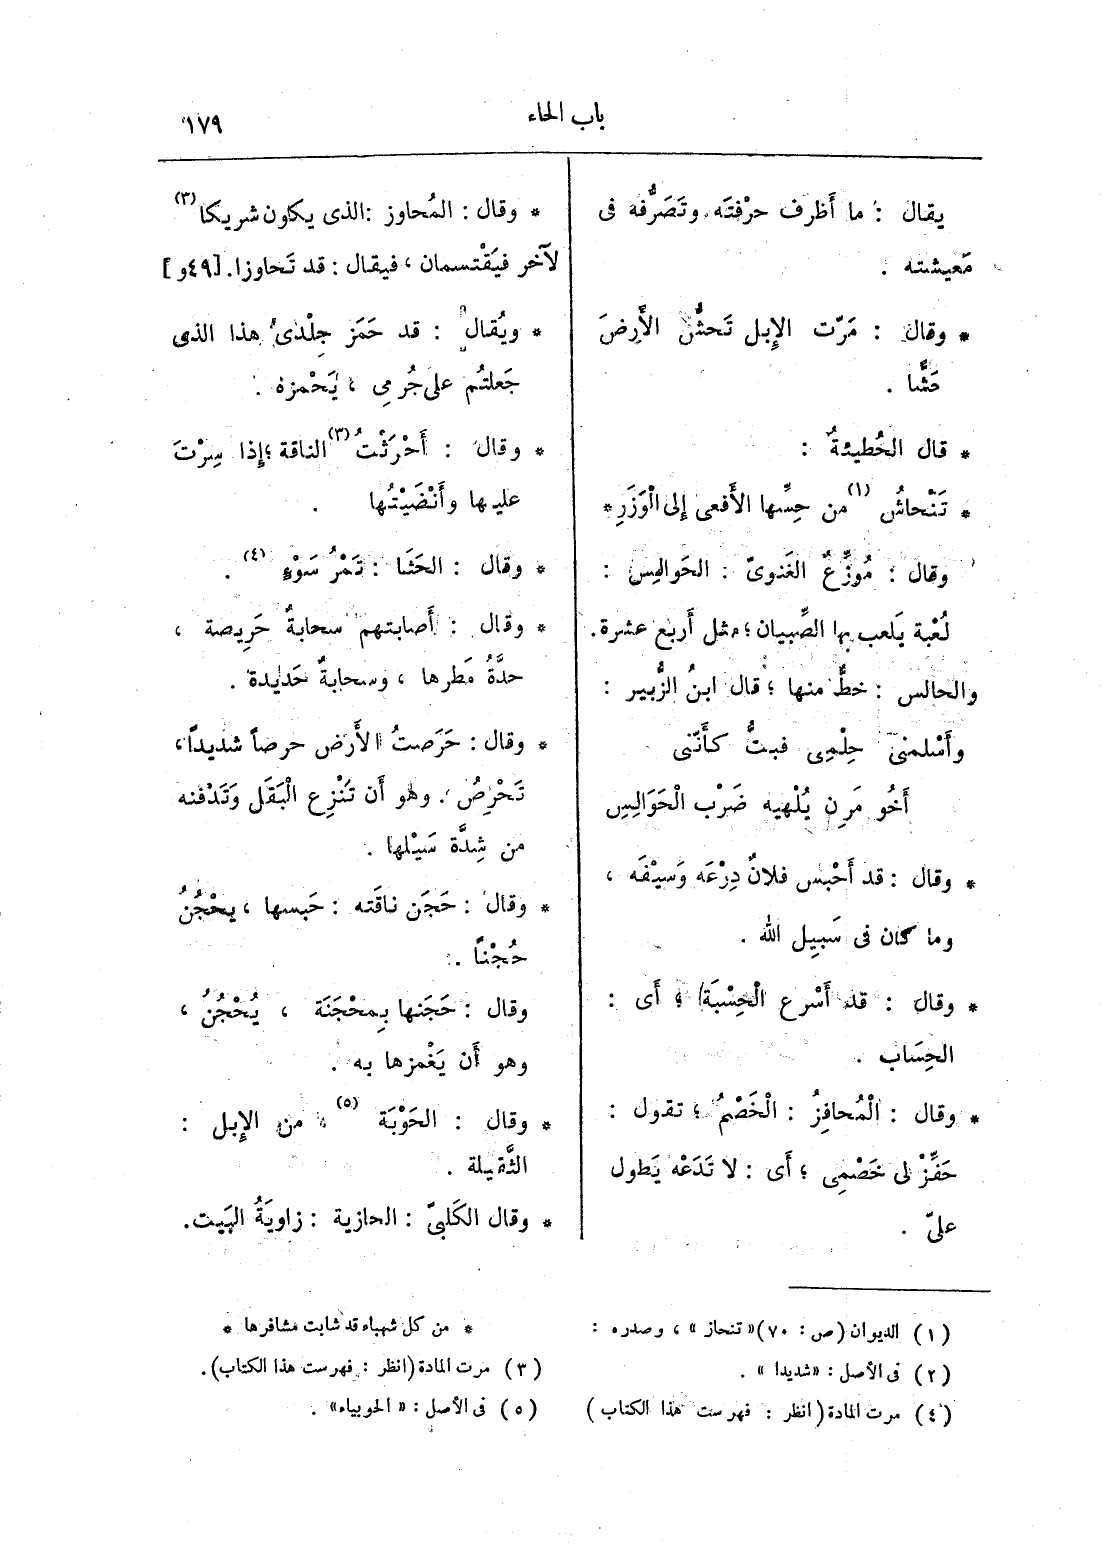 باب الحاء
١٧٩
يقال : ما أَظرف حرْفتَه وتَصَرُّفه فى
مَعيشته .
* وقال : مَرّت الإبل تَحثُّ الأَرضَ
حَثًّا .
* قال الحُطيئةُ :
* تَنْحاشُ (١) من حِسِّها الأَفعى إلى الْوَزَرِ *
وقال : مُوزِّعٌ الغَنوىّ : الحَوالِس :
لُعْبة يَلعب بها الصِّبيان ؛ مثل أَربع عشرة .
والحالس : خطٌّ منها ؛ قال ابنُ الزُّبير :
وأَسْلمنى حِلْمِى فبتُّ كأَنّنى
أَخُو مَرَنٍ يُلْهيه ضَرْب الْحَوَالِسِ
* وقال : قد أَحْبس فلانٌ دِرْعَه وَسيْفَه ،
وما كان فى سَبِيل الله .
* وقال : قد أَسْرع الْحِسْبَة ؛ أَى :
الحِسَاب .
* وقال : الْمُحافِزُ : الْخَصْمُ ؛ تقول :
حَفِّزْ لى خَصْمِى ؛ أَى : لا تَدَعْه يَطول
علىّ .
* وقال : المُحاوز : الذى يكاون شريكا (٣)
لآخر فيَقْتسمان ، فيقال : قد تَحاوزا . [٤٩و]
* ويُقال : قد حَمَز جِلْدىُ هذا الذى
جَعلتُم على جُرمى ، يَحْمزه .
* وقال : أَحْرَثْتُ (٣) الناقة ؛ إذا سِرْتَ
عليها وأَنْضَيْتُها .
* وقال : الحَثَا : تَمْرُ سَوْءٍ (٤) .
* وقال : أَصابتهم سحابةٌ حَرِيصة ،
حدَّةُ مَطرها ، وسحابةٌ حَديدة .
* وقال : حَرَصتُ الأَرض حرصاً شديداً ،
تَحْرِصُ . وهو أن تَنْزِع الْبَقَل وَتَدْفنه
من شِدَّة سَيْلها .
* وقال : حَجَن ناقَته : حَبسها ، يحْجُنُ
حُجْناً .
وقال : حَجَنها بِمحْجَنَة ، يُحْجُنُ ،
وهو أَن يَغْمزها به .
* وقال : الحَوْبَة (٥) ، من الإبل :
الثَّقيلة .
* وقال الكَلبىّ : الحازية : زاويَةُ البَيت .
(١) الديوان (ص : ٧٠) « تنحاز » ، وصدره :
* من كل شهباء قد شابت مشافرها *
(٢) فى الأصل : «شديدا» .
(٣) مرت المادة (انظر : فهرست هذا الكتاب) .
(٤) مرت المادة (انظر : فهرست هذا الكتاب)
(٥) فى الأصل : « الحوبياء» .